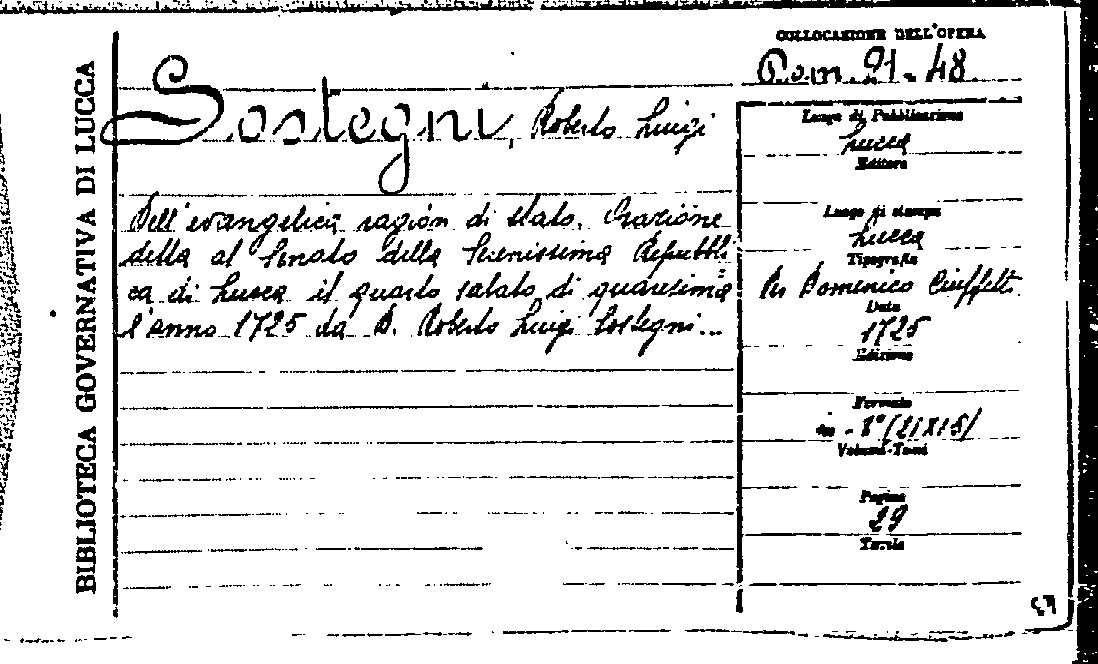 BIBLIOTECA GOVERNATIVA DI LUCCA
COLLOCAZIONE DELL'OPERA
Rom. 91-48
Sostegni, Roberto Luigi
Dell'evangelica ragion di stato. Orazione
detta al Senato della Serenissima Repubbli
ca di Lucca il quarto sabato di quaresima
l'anno 1725 da D. Roberto Luigi Sostegni...
Luogo di Pubblicazione
Lucca
Editore
Luogo di stampa
Lucca
Tipografia
Per Domenico Ciuffetti
Data
1725
Edizione
Formato
in-8° (21X15)
Volumi-Tomi
Pagine
29
Tavole